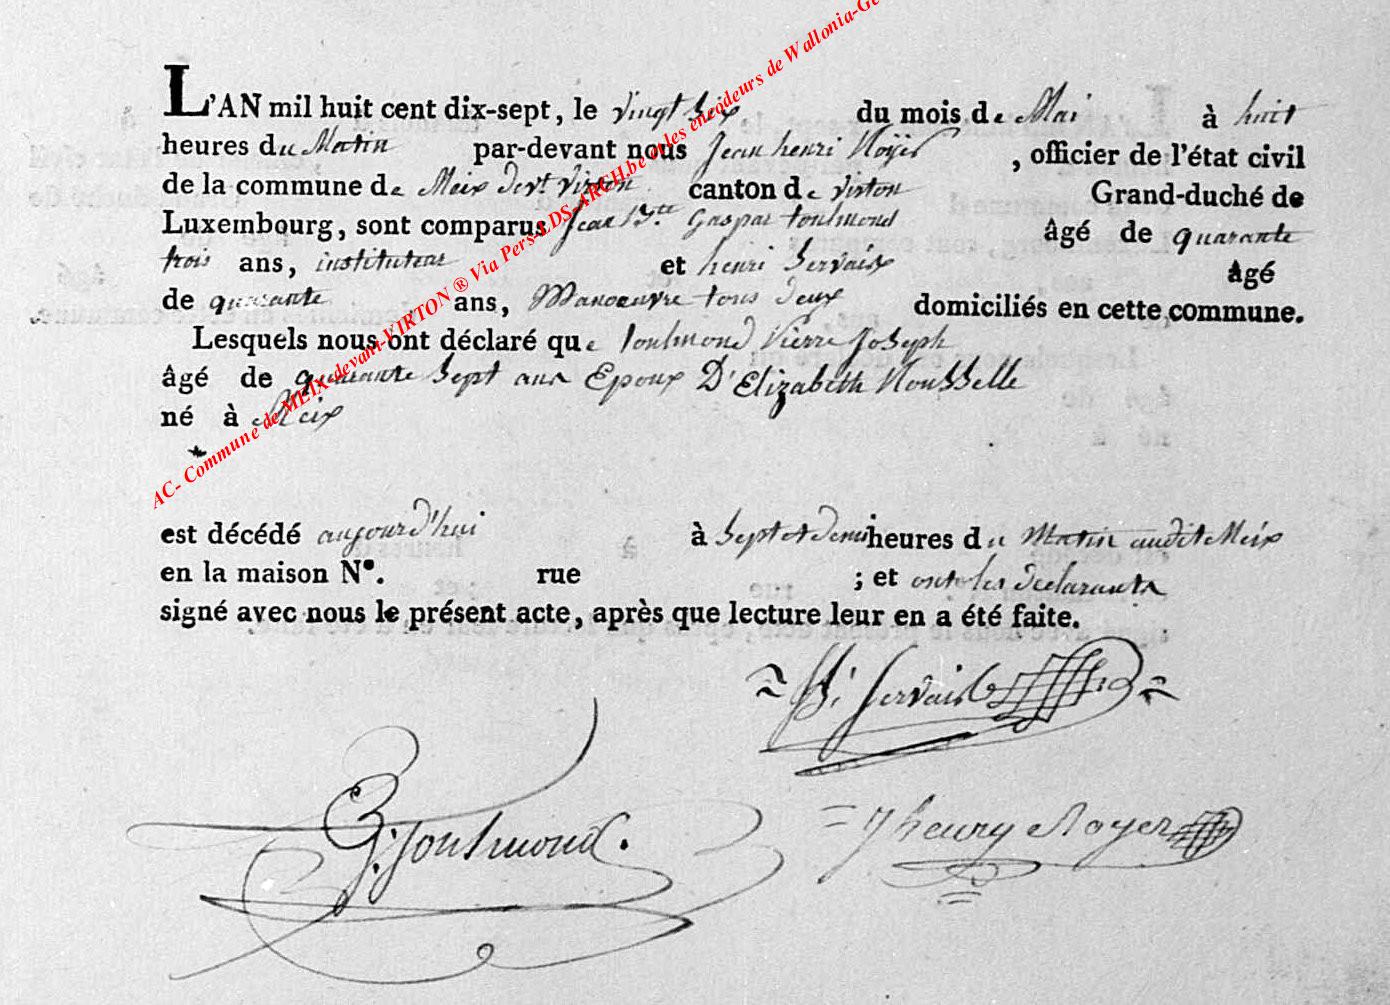 L'AN mil huit cent dix-sept, le vingt six du mois de Mai à huit
heures du Matin par-devant nous Jean henri Noyer, officier de l'état civil
de la commune de Meix devt virton canton de virton Grand-duché de
Luxembourg, sont comparus Jean Bte Gaspar toulmond âgé de quarante
trois ans, instituteur et henri Servais âgé
de quarante ans, Manoeuvre tous deux domiciliés en cette commune.
Lesquels nous ont déclaré que toulmond Pierre Joseph
âgé de quarante Sept ans Epoux D'Elizabeth Rousselle
né à Meix
est décédé aujourd'hui à Sept et demi heures du Matin audit Meix
en la maison N°. rue ; et ont les declarants
signé avec nous le présent acte, après que lecture leur en a été faite.
Servais
Toulmond.
J henry Noyer
AC- Commune de MEIX-devant-VIRTON ® Via Pers-LDS-ARCH.be et les encodeurs de Wallonia-Ge